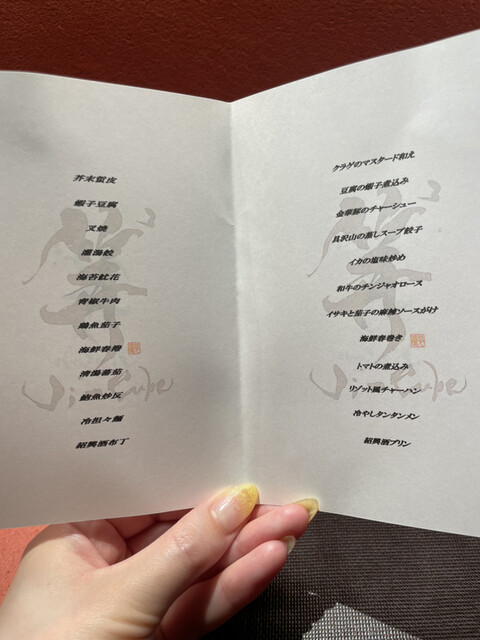 芥末蜇皮
蝦子豆腐
叉焼
灌湯餃
海苔魷花
青椒牛肉
鶏魚茄子
海鮮春捲
清湯蕃茄
鮑魚炒反
冷担々麺
紹興酒布丁
クラゲのマスタード和え
豆腐の蝦子煮込み
金華豚のチャーシュー
具沢山の蒸しスープ餃子
イカの塩味炒め
和牛のチンジャオロース
イサキと茄子の麻辣ソースがけ
海鮮春巻き
トマトの煮込み
リゾット風チャーハン
冷やしタンタンメン
紹興酒プリン